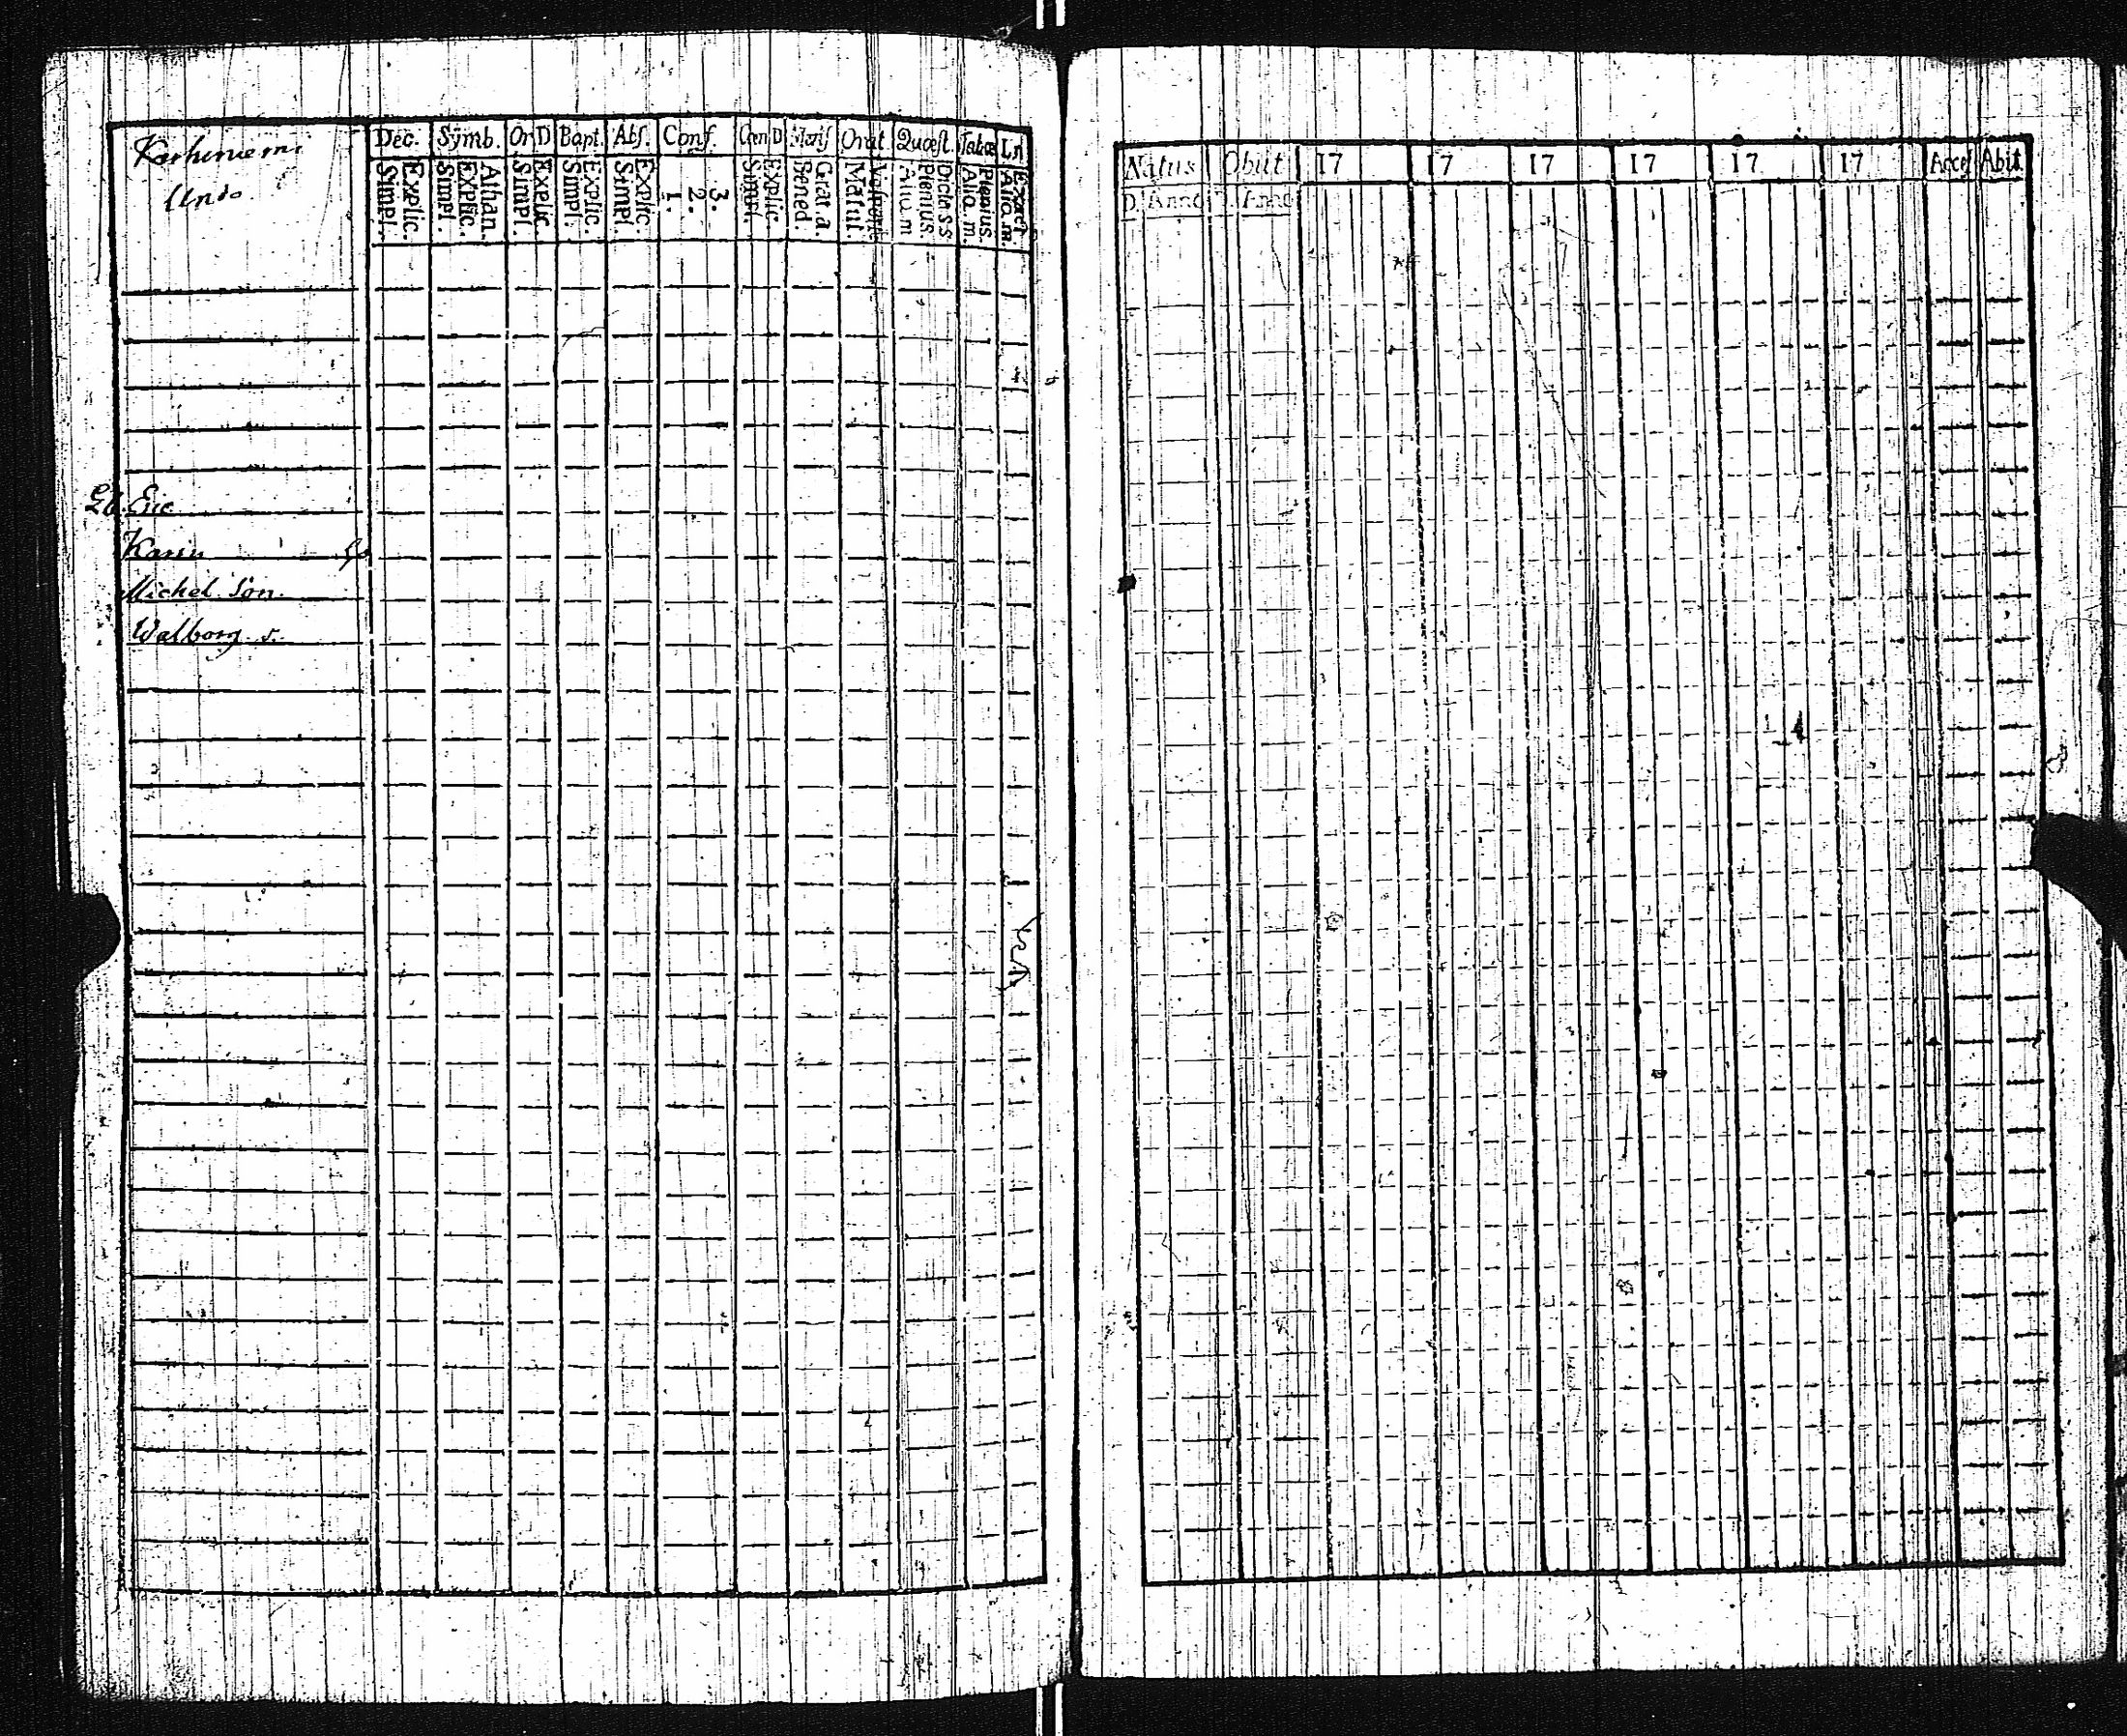 Karhuniemi
Undo
Dec. Symb. Or D Bapt. Abs. Conf. Cœn D Mens Orat. Quæst. Tabœ Ln
Explic. Simpl. Athan. Explic. Simpl. Explic. Simpl. Explic. Simpl. Explic. Simpl. 3. 2. 1. Explic. Simpl. Grat. a. Bened. Vespert. Matut. Dicta S S Plenius. Aliq. m Plenius. Aliq. m. Exact Aliq. m.
Eric
Karin
Michel Son.
Walborg
Natus Obiit 17 17 17 17 17 17 Acces Abit
D. Anno D. Anno